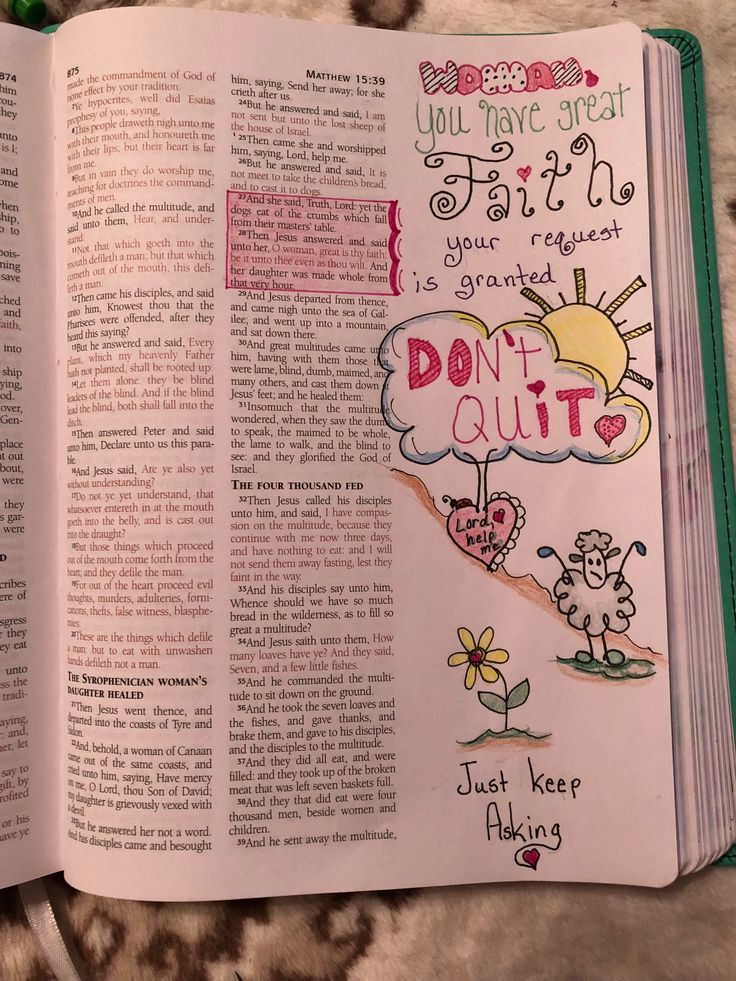 874
him
rou-
they
unto
is I;
and
ome
when
ship,
p to
pois-
ning
save
ched
and
aith,
into
ship
ying,
d.
over,
Gen-
place
at out
bout,
were
they
s gar-
were
D
cribes
ere of
sgress
r they
ey eat
unto
ss the
tradi-
aying,
r: and,
her, let
say to
gift, by
rofited
or his
ave ye
875
made the commandment of God of
none effect by your tradition.
7Ye hypocrites, well did Esaias
prophesy of you, saying,
8This people draweth nigh unto me
with their mouth, and honoureth me
with their lips; but their heart is far
from me.
9But in vain they do worship me,
teaching for doctrines the command-
ments of men.
10And he called the multitude, and
said unto them, Hear, and under-
stand:
11Not that which goeth into the
mouth defileth a man; but that which
cometh out of the mouth, this defi-
leth a man.
12Then came his disciples, and said
unto him, Knowest thou that the
Pharisees were offended, after they
heard this saying?
13But he answered and said, Every
plant, which my heavenly Father
hath not planted, shall be rooted up.
14Let them alone: they be blind
leaders of the blind. And if the blind
lead the blind, both shall fall into the
ditch.
15Then answered Peter and said
unto him, Declare unto us this para-
ble.
16And Jesus said, Are ye also yet
without understanding?
17Do not ye yet understand, that
whatsoever entereth in at the mouth
goeth into the belly, and is cast out
into the draught?
18But those things which proceed
out of the mouth come forth from the
heart; and they defile the man.
19For out of the heart proceed evil
thoughts, murders, adulteries, forni-
cations, thefts, false witness, blasphe-
mies:
20These are the things which defile
a man: but to eat with unwashen
hands defileth not a man.
THE SYROPHENICIAN WOMAN'S
DAUGHTER HEALED
21Then Jesus went thence, and
departed into the coasts of Tyre and
Sidon.
22And, behold, a woman of Canaan
came out of the same coasts, and
cried unto him, saying, Have mercy
on me, O Lord, thou Son of David;
my daughter is grievously vexed with
a devil.
23But he answered her not a word.
And his disciples came and besought
MATTHEW 15:39
him, saying, Send her away; for she
crieth after us.
24But he answered and said, I am
not sent but unto the lost sheep of
the house of Israel.
25Then came she and worshipped
him, saying, Lord, help me.
26But he answered and said, It is
not meet to take the children's bread,
and to cast it to dogs.
27And she said, Truth, Lord: yet the
dogs eat of the crumbs which fall
from their masters' table.
28Then Jesus answered and said
unto her, O woman, great is thy faith:
be it unto thee even as thou wilt. And
her daughter was made whole from
that very hour.
29And Jesus departed from thence,
and came nigh unto the sea of Gal-
ilee; and went up into a mountain,
and sat down there.
30And great multitudes came unto
him, having with them those that
were lame, blind, dumb, maimed, and
many others, and cast them down at
Jesus' feet; and he healed them:
31Insomuch that the multitude
wondered, when they saw the dumb
to speak, the maimed to be whole,
the lame to walk, and the blind to
see: and they glorified the God of
Israel.
THE FOUR THOUSAND FED
32Then Jesus called his disciples
unto him, and said, I have compas-
sion on the multitude, because they
continue with me now three days,
and have nothing to eat: and I will
not send them away fasting, lest they
faint in the way.
33And his disciples say unto him,
Whence should we have so much
bread in the wilderness, as to fill so
great a multitude?
34And Jesus saith unto them, How
many loaves have ye? And they said,
Seven, and a few little fishes.
35And he commanded the multi-
tude to sit down on the ground.
36And he took the seven loaves and
the fishes, and gave thanks, and
brake them, and gave to his disciples,
and the disciples to the multitude.
37And they did all eat, and were
filled: and they took up of the broken
meat that was left seven baskets full.
38And they that did eat were four
thousand men, beside women and
children.
39And he sent away the multitude,
WOMAN,
you have great
Faith
your request
is granted
DON't
QUiT
Lord,
help
me
Just keep
Asking